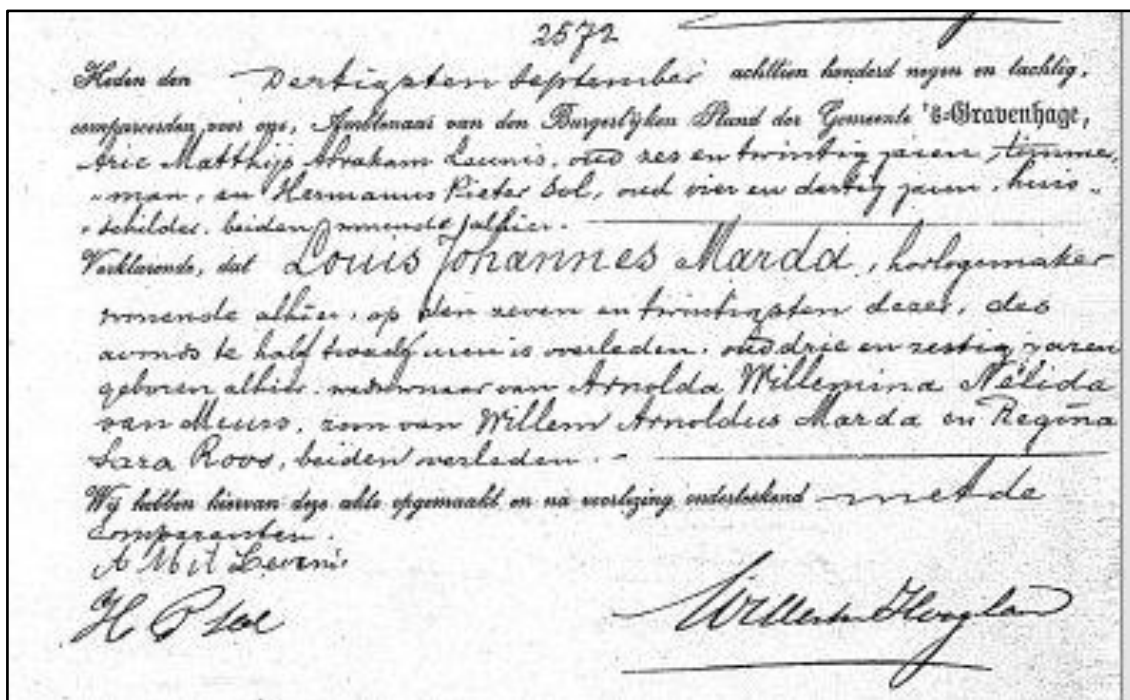 2572
Heden den Dertigsten September achttien honderd negen en tachtig,
compareerden voor ons, Ambtenaar van den Burgerlijken Stand der Gemeente 's-Gravenhage,
Arie Matthijs Abraham Leunis, oud zes en twintig jaren, timmer„
„man, en Hermanus Pieter Sol, oud vier en dertig jaren, huis„
„schilder, beiden wonende alhier.
Verklarende, dat Louis Johannes Marda, horlogemaker
wonende alhier, op den zeven en twintigsten dezer, des
avonds te half twaalf uren is overleden, oud drie en zestig jaren
geboren alhier, weduwnaar van Arnolda Willemina Nélida
van Meurs, zoon van Willem Arnoldus Marda en Regina
Sara Roos, beiden overleden.
Wij hebben hiervan deze akte opgemaakt en na voorlezing onderteekend met de
Comparanten.
H P Sol